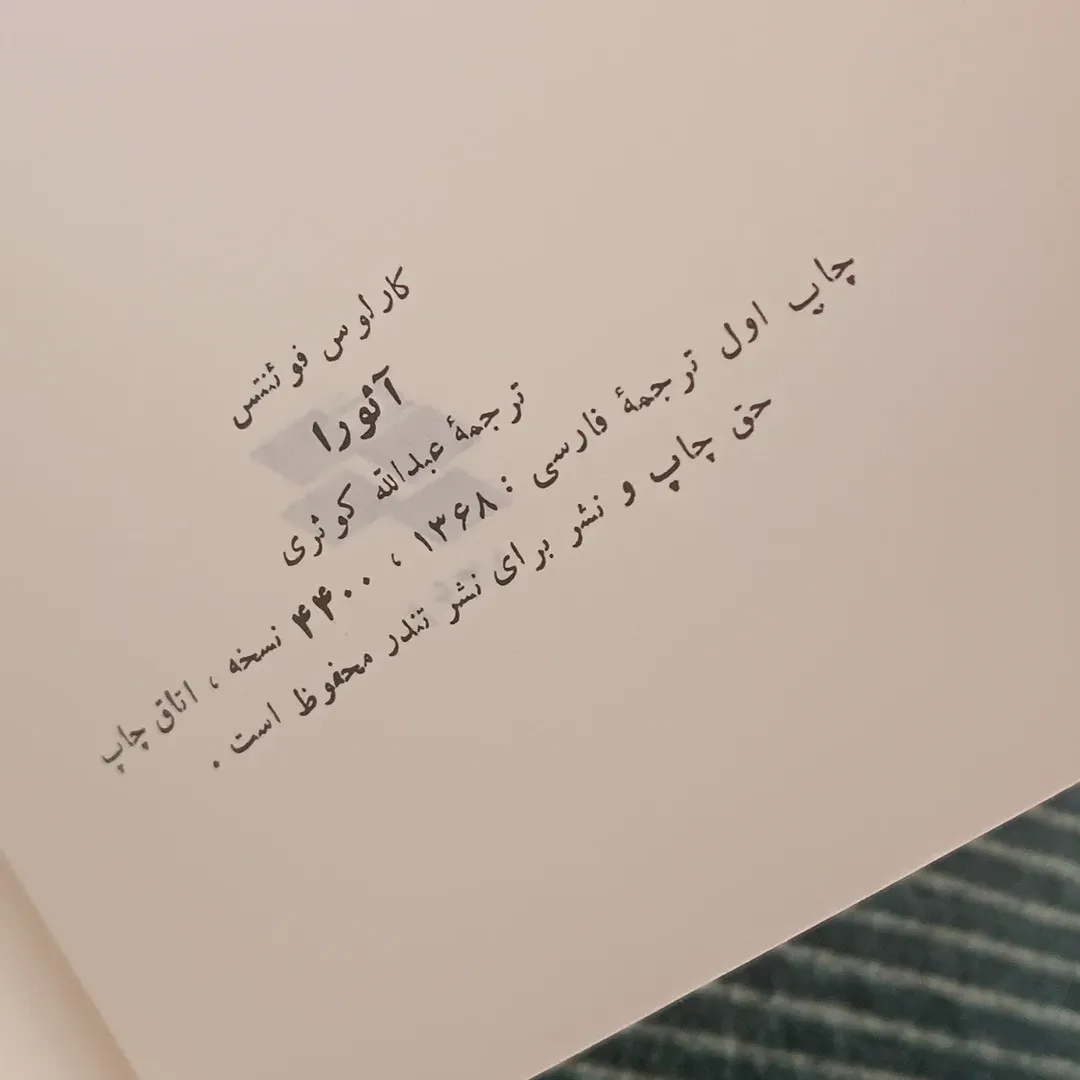 کارلوس فوئنتس
آئورا
ترجمهٔ عبدالله کوثری
چاپ اول ترجمهٔ فارسی : ۱۳۶۸ ، ۴۴۰۰ نسخه ، اتاق چاپ
حق چاپ و نشر برای نشر تندر محفوظ است .